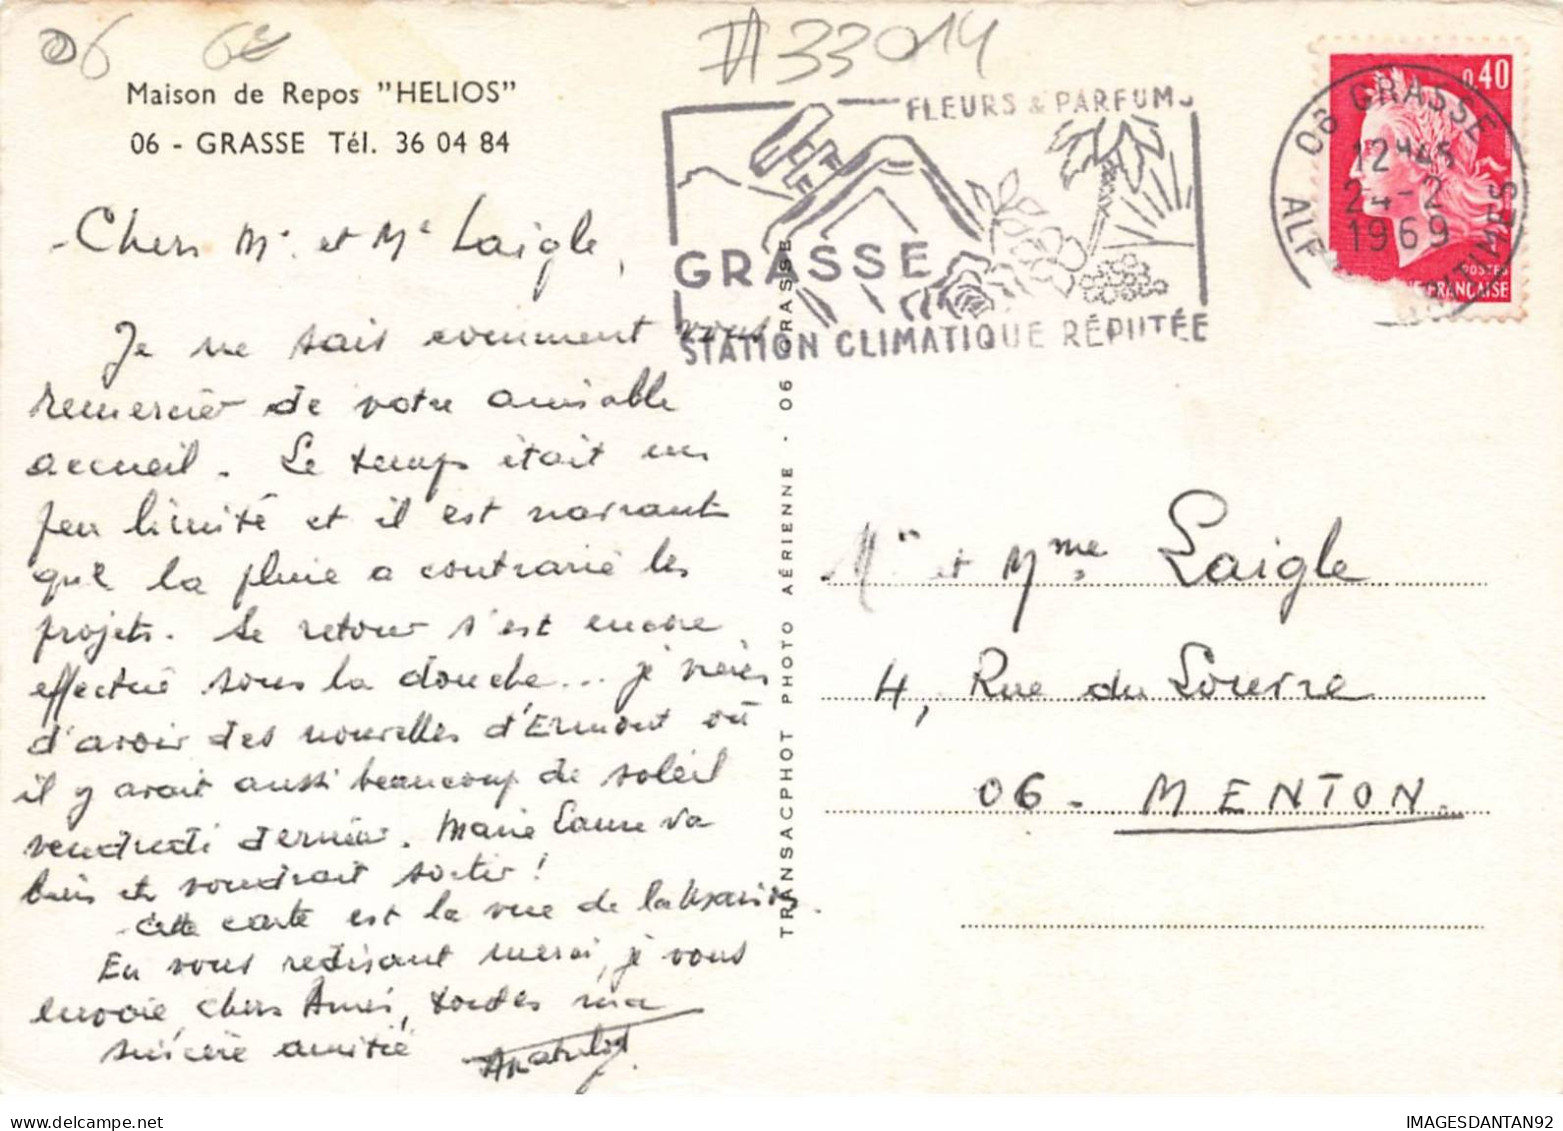 06 6e #33014
Maison de Repos "HELIOS"
06 - GRASSE Tél. 36 04 84
FLEURS & PARFUMS
GRASSE
STATION CLIMATIQUE RÉPUTÉE
0,40
POSTES
FRANÇAISE
06 GRASSE
12H45
24-2
1969
Chers Mr et Me Laigle,
Je ne sais comment vous
remercier de votre aimable
accueil. Le temps était un
peu limité et il est navrant
que la pluie a contrarié les
projets. Le retour s'est encore
effectué sous la douche... je viens
d'avoir des nouvelles d'Ermont où
il y avait aussi beaucoup de soleil
vendredi dernier. Marie Laure va
bien et voudrait sortir !
Cette carte est la vue de la Maison.
En vous redisant merci, je vous
envoie, chers Amis, toutes ma
sincère amitié
TRANSACPHOT PHOTO AÉRIENNE - 06 GRASSE
Mr et Mme Laigle
4, Rue du Louvre
06 - MENTON.
IMAGESDANTAN92